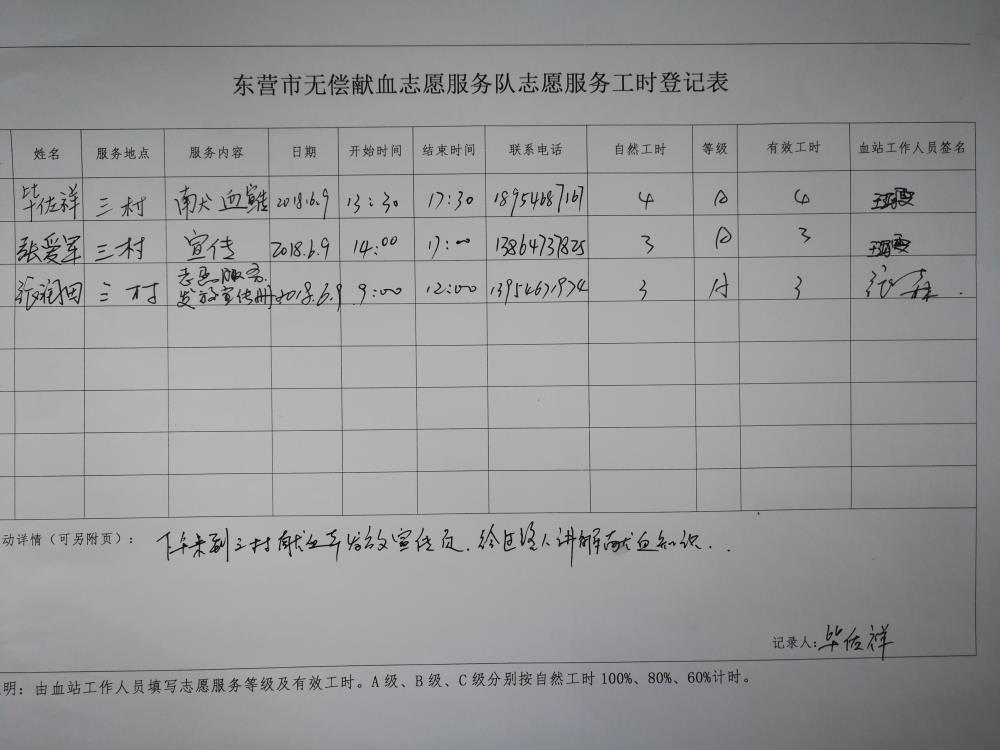 东营市无偿献血志愿服务队志愿服务工时登记表
姓名 服务地点 服务内容 日期 开始时间 结束时间 联系电话 自然工时 等级 有效工时 血站工作人员签名
毕佐祥 三村 献血宣传 2018.6.9 13:30 17:30 18954687167 4 A 4
张爱军 三村 宣传 2018.6.9 14:00 17:00 13864737825 3 A 3
三村 志愿服务 2018.6.9 9:00 12:00 13954671974 3 A 3 张森.
发放宣传册
动详情(可另附页): 下午来到三村献血车发放宣传页.给过路人讲解献血知识..
记录人:毕佐祥
明:由血站工作人员填写志愿服务等级及有效工时。A级、B级、C级分别按自然工时100%、80%、60%计时。